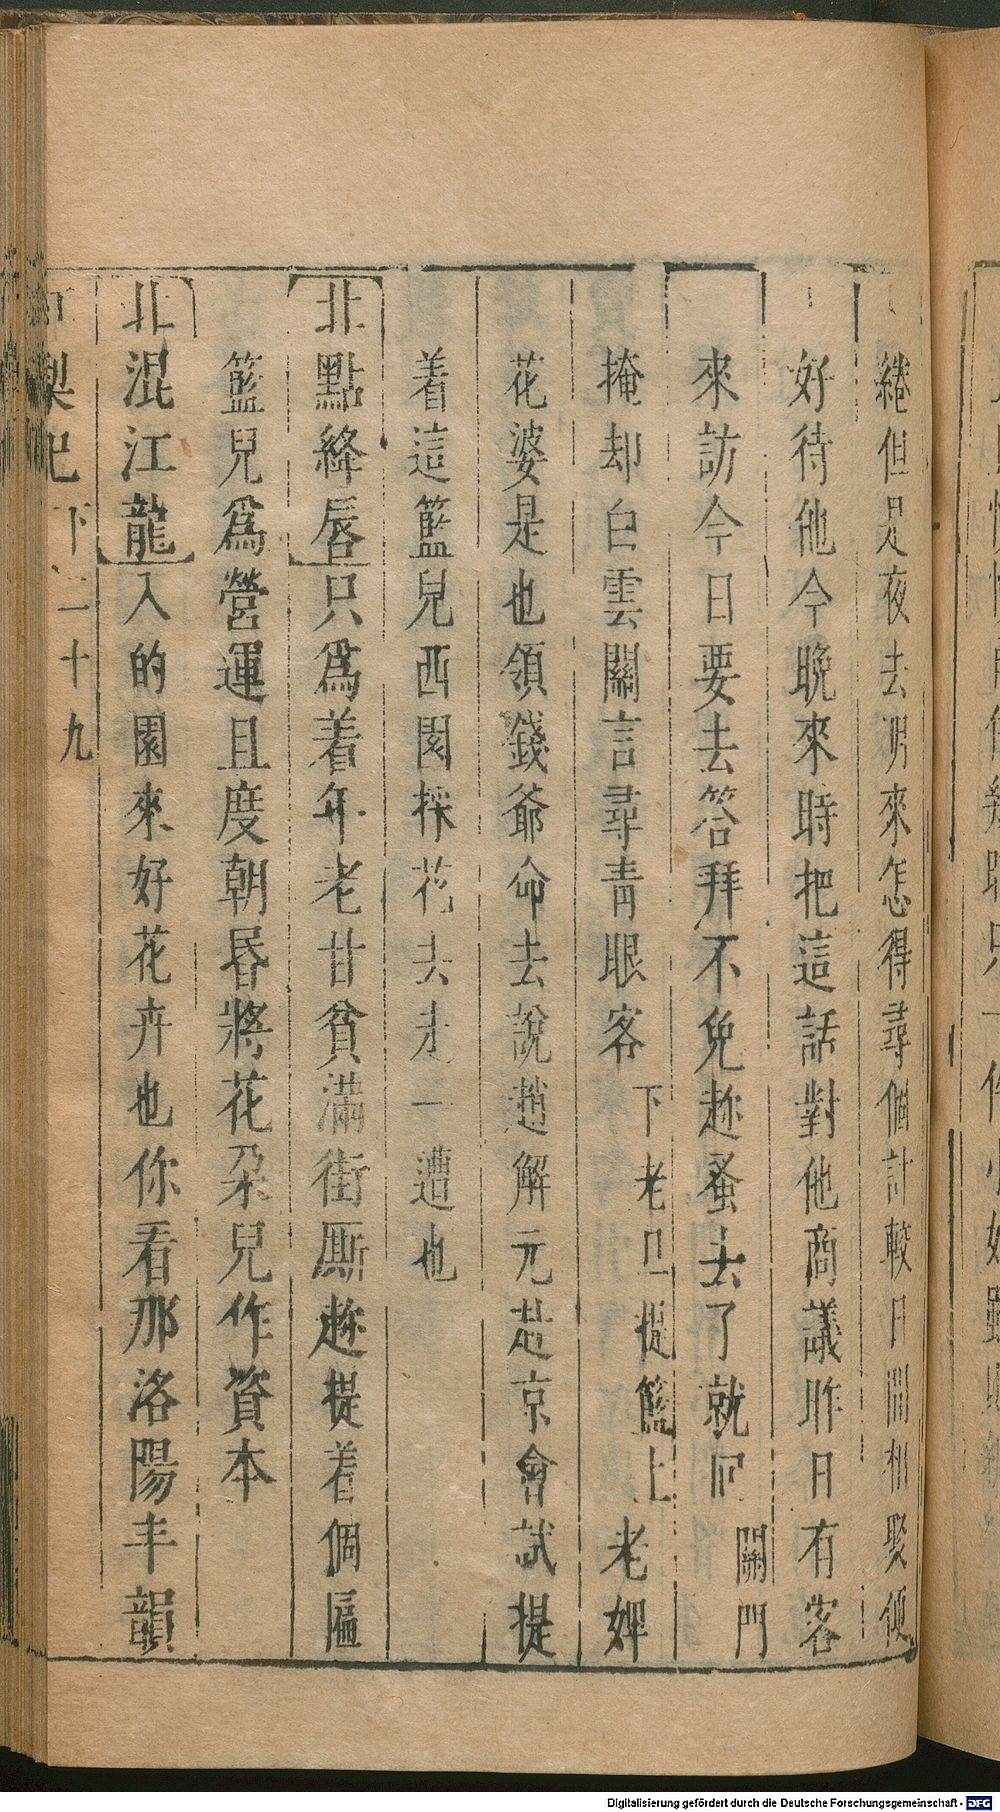 綣但是夜去明來怎得尋個計較日間相娶便
好待他今晚來時把這話對他商議昨日有客
來訪今日要去答拜不免趂蚤去了就回關門
掩却白雲關言尋青眼客下老旦提籃上老婢
花婆是也領錢爺命去說趙解元赴京會試提
着這籃兒西園採花去走一遭也
北點絳唇只爲着年老甘貧滿街厮趂提着個匾
籃兒爲營運且度朝昏將花朵兒作資本
北混江龍入的園來好花卉也你看那洛陽丰韻
梨記 下 二十九
Digitalisierung gefördert durch die Deutsche Forschungsgemeinschaft - DFG